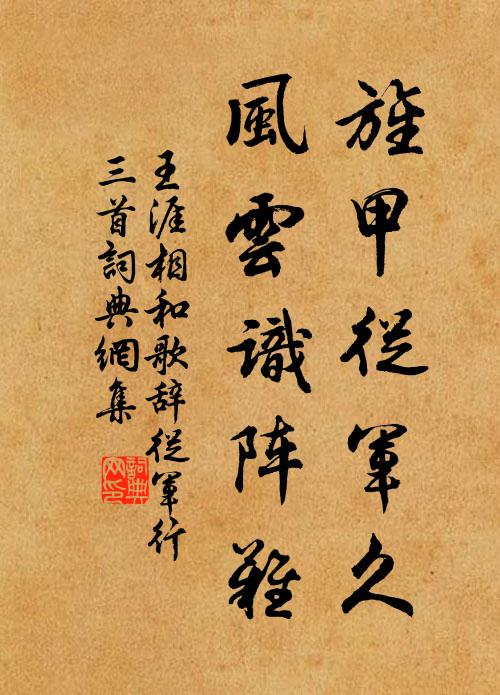 旌甲從軍久
風雲識阵難
王涯相和歌辞從軍行
三首詞典網集
詞典
网印